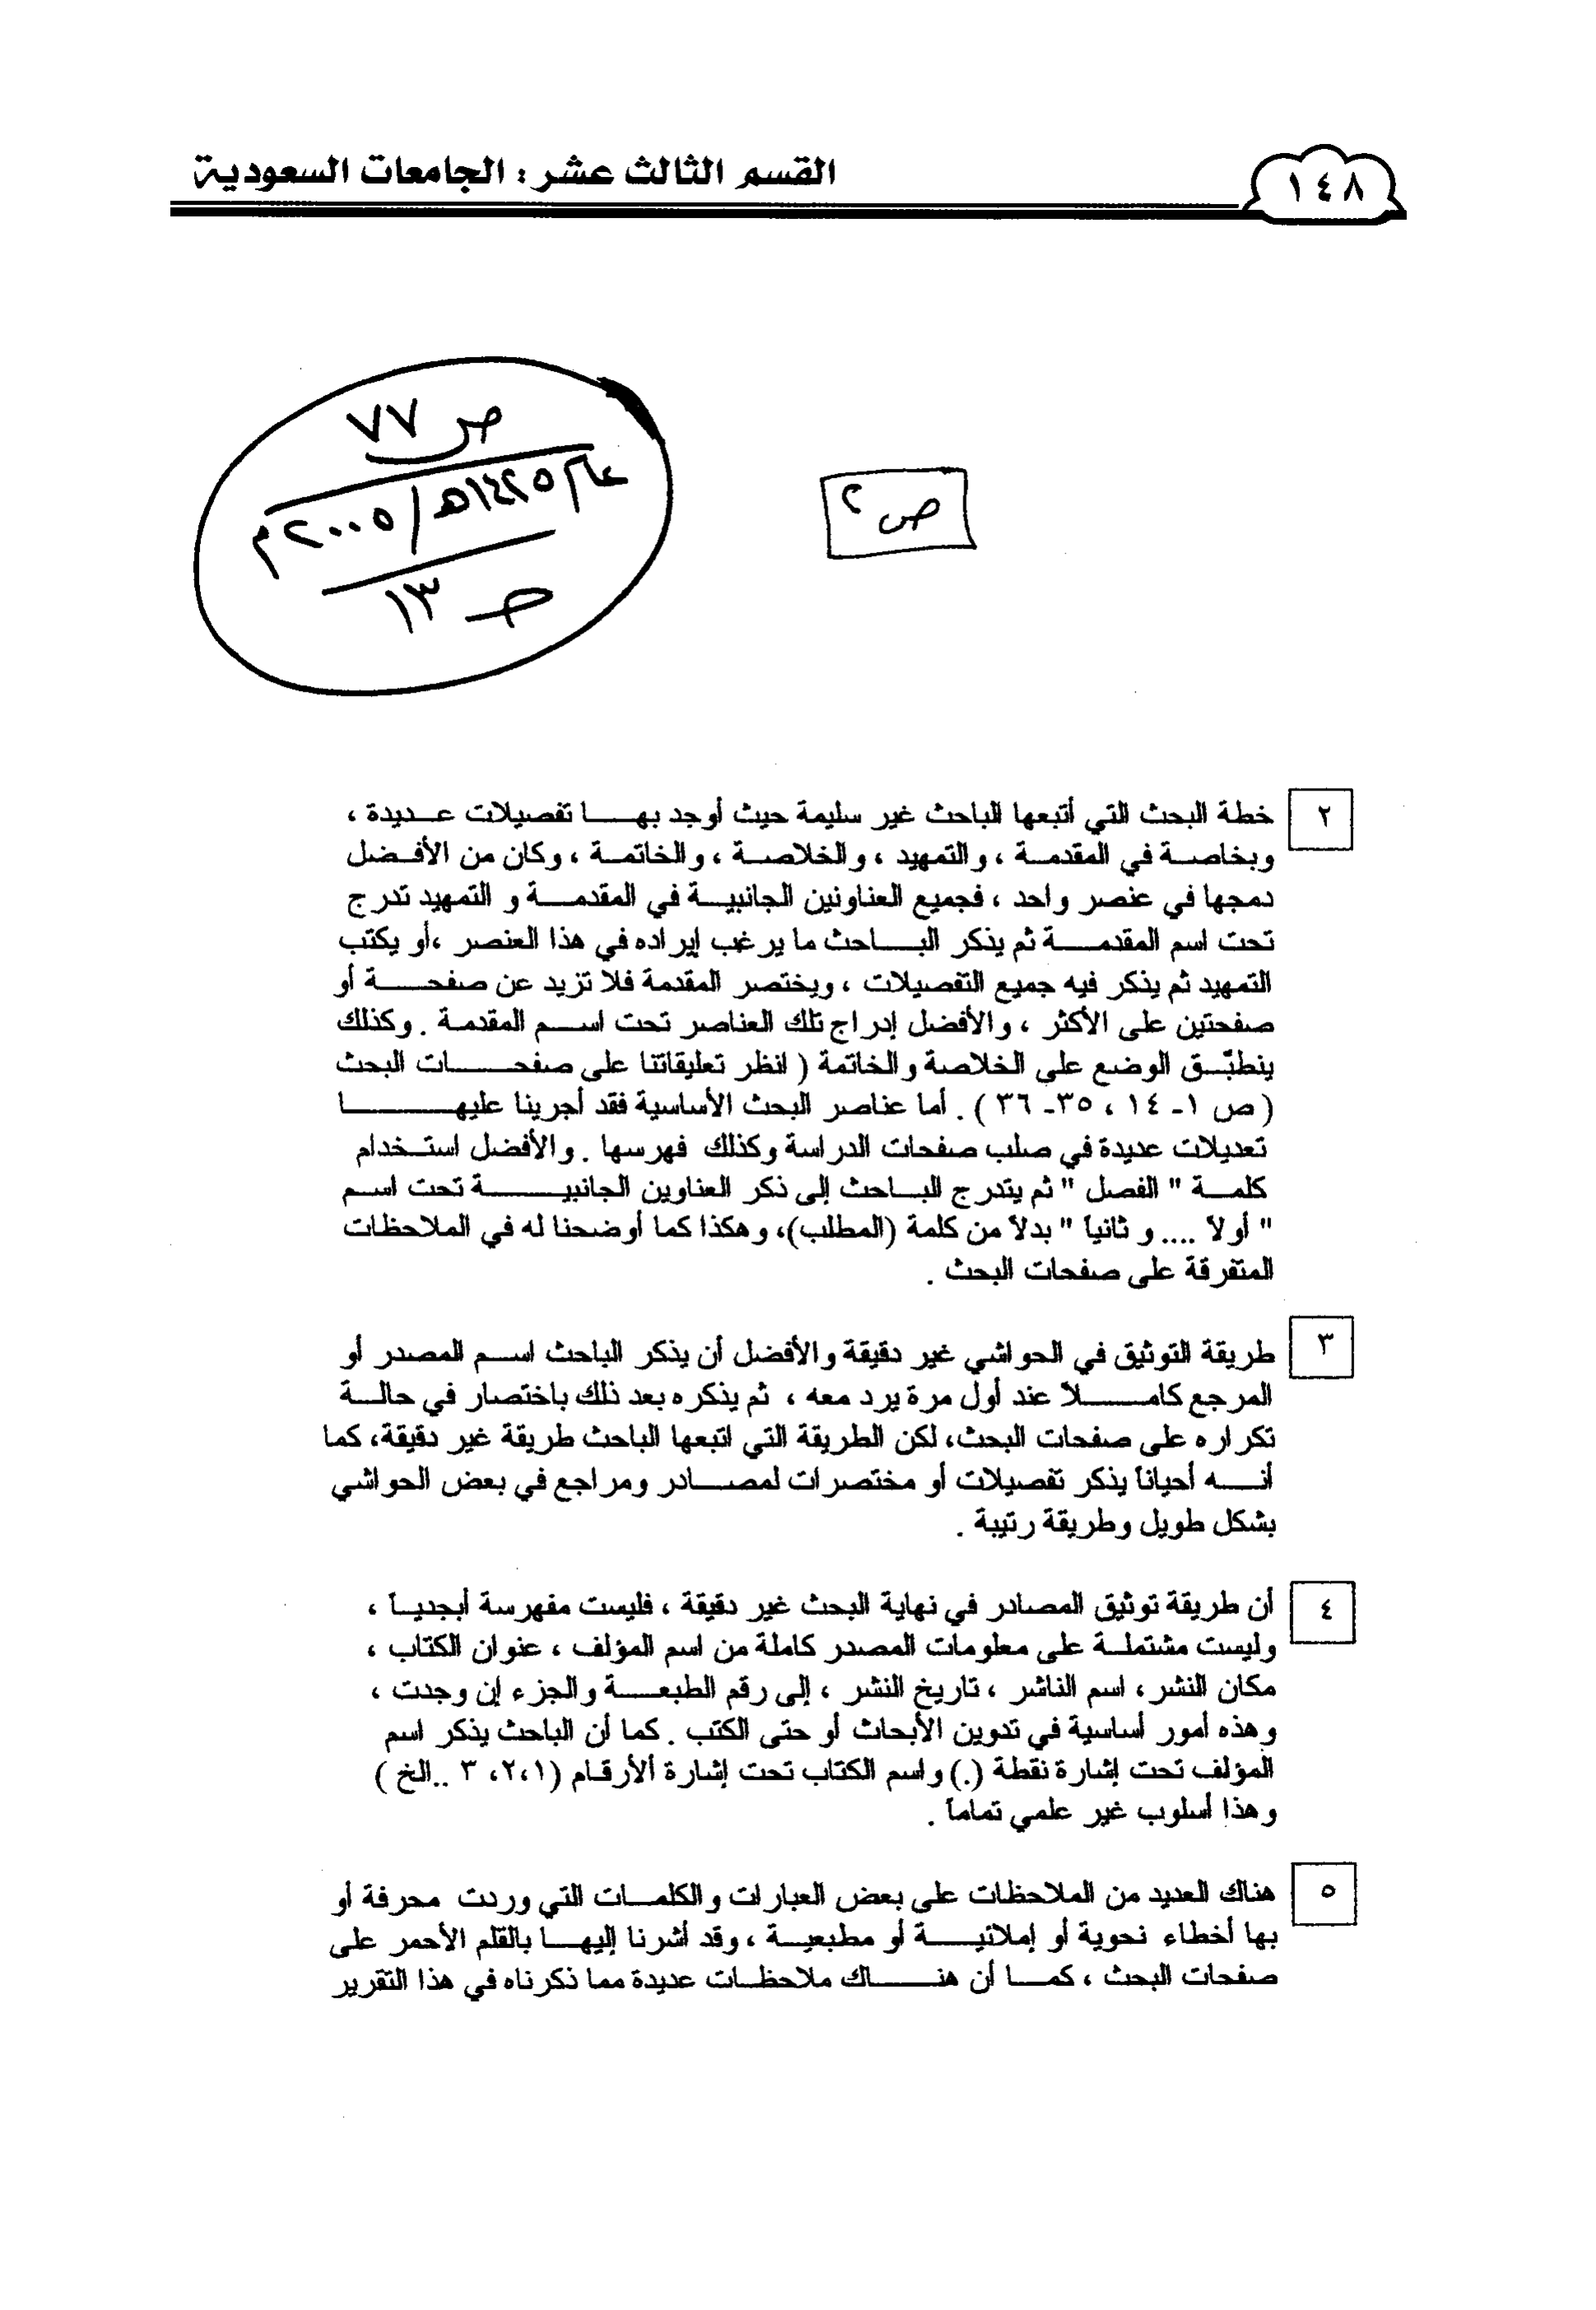 ١٤٨
القسم الثالث عشر : الجامعات السعودية
ص ٧٧
عام ١٤٢٥هـ/٢٠٠٥م
حـ ١٣
ص ٢
٢
خطة البحث التي أتبعها الباحث غير سليمة حيث أوجد بهـا تفصيلات عـديدة ،
وبخاصـة في المقدمـة ، والتمهيد ، والخلاصـة ، والخاتمـة ، وكان من الأفـضل
دمجها في عنصر واحد ، فجميع العناونين الجانبيـة في المقدمـة و التمهيد تدرج
تحت اسم المقدمـة ثم يذكر البـاحث ما يرغب إيراده في هذا العنصر ،أو يكتب
التمهيد ثم يذكر فيه جميع التفصيلات ، ويختصر المقدمة فلا تزيد عن صفحـة أو
صفحتين على الأكثر ، والأفضل إدراج تلك العناصر تحت اسـم المقدمـة . وكذلك
ينطبّـق الوضع على الخلاصة والخاتمة ( انظر تعليقاتنا على صفحـات البحث
( ص ١- ١٤ ، ٣٥- ٣٦ ) . أما عناصر البحث الأساسية فقد أجرينا عليهـا
تعديلات عديدة في صلب صفحات الدراسة وكذلك فهرسها . والأفضل استـخدام
كلمـة " الفصل " ثم يتدرج البـاحث إلى ذكر العناوين الجانبيـة تحت اسـم
" أولاً .... و ثانياً " بدلاً من كلمة (المطلب)، وهكذا كما أوضحنا له في الملاحظات
المتفرقة على صفحات البحث .
٣
طريقة التوثيق في الحواشي غير دقيقة والأفضل أن يذكر الباحث اسـم المصدر أو
المرجع كامـلاً عند أول مرة يرد معه ، ثم يذكره بعد ذلك باختصار في حالـة
تكراره على صفحات البحث، لكن الطريقة التي اتبعها الباحث طريقة غير دقيقة، كما
أنـه أحياناً يذكر تفصيلات أو مختصرات لمصـادر ومراجع في بعض الحواشي
بشكل طويل وطريقة رتيبة .
٤
أن طريقة توثيق المصادر في نهاية البحث غير دقيقة ، فليست مفهرسة أبجديـاً ،
وليست مشتملـة على معلومات المصدر كاملة من اسم المؤلف ، عنوان الكتاب ،
مكان النشر، اسم الناشر ، تاريخ النشر ، إلى رقم الطبعـة والجزء إن وجدت ،
وهذه أمور أساسية في تدوين الأبحاث أو حتى الكتب . كما أن الباحث يذكر اسم
المؤلف تحت إشارة نقطة (.) واسم الكتاب تحت إشارة ألأرقـام (١،٢، ٣ ..الخ )
وهذا أسلوب غير علمي تماماً .
٥
هناك العديد من الملاحظات على بعض العبارات والكلمـات التي وردت محرفة أو
بها أخطاء نحوية أو إملائيـة أو مطبعيـة ، وقد أشرنا إليهـا بالقلم الأحمر على
صفحات البحث ، كمـا أن هنـاك ملاحظـات عديدة مما ذكرناه في هذا التقرير